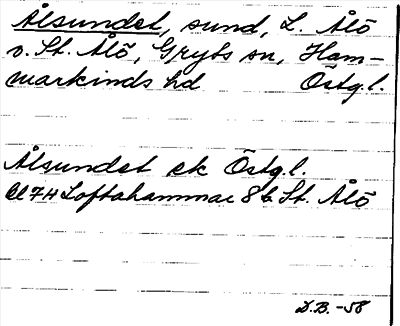 Ålsundet, sund, L. Ålö
v. St. Ålö, Gryts sn, Ham-
markinds hd Östg.l.
Ålsundet ek Östg.l.
Loftahammar 8 b St. Ålö
D.B. -58